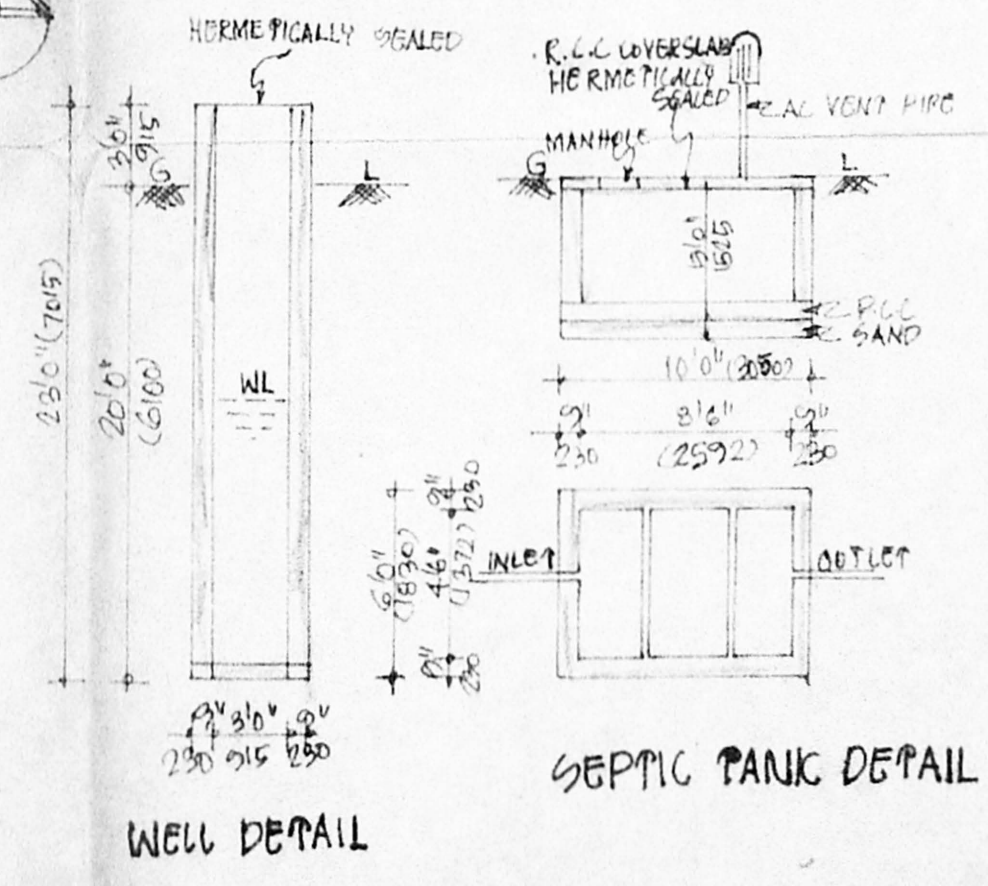 HERMETICALLY SEALED
3'0"
915
G
L
23'0" (7015)
20'0"
(6100)
WL
9" 3'0" 9"
230 915 230
WELL DETAIL
R.C.C COVERSLAB
HERMETICALLY
SEALED
AC VENT PIPE
MANHOLE
G
L
5'0"
1525
P.C.C
SAND
10'0" (3050)
9" 8'6" 9"
230 (2592) 230
6'0"
(1830)
9"
230
4'6"
(1372)
9"
230
INLET
OUTLET
SEPTIC TANK DETAIL